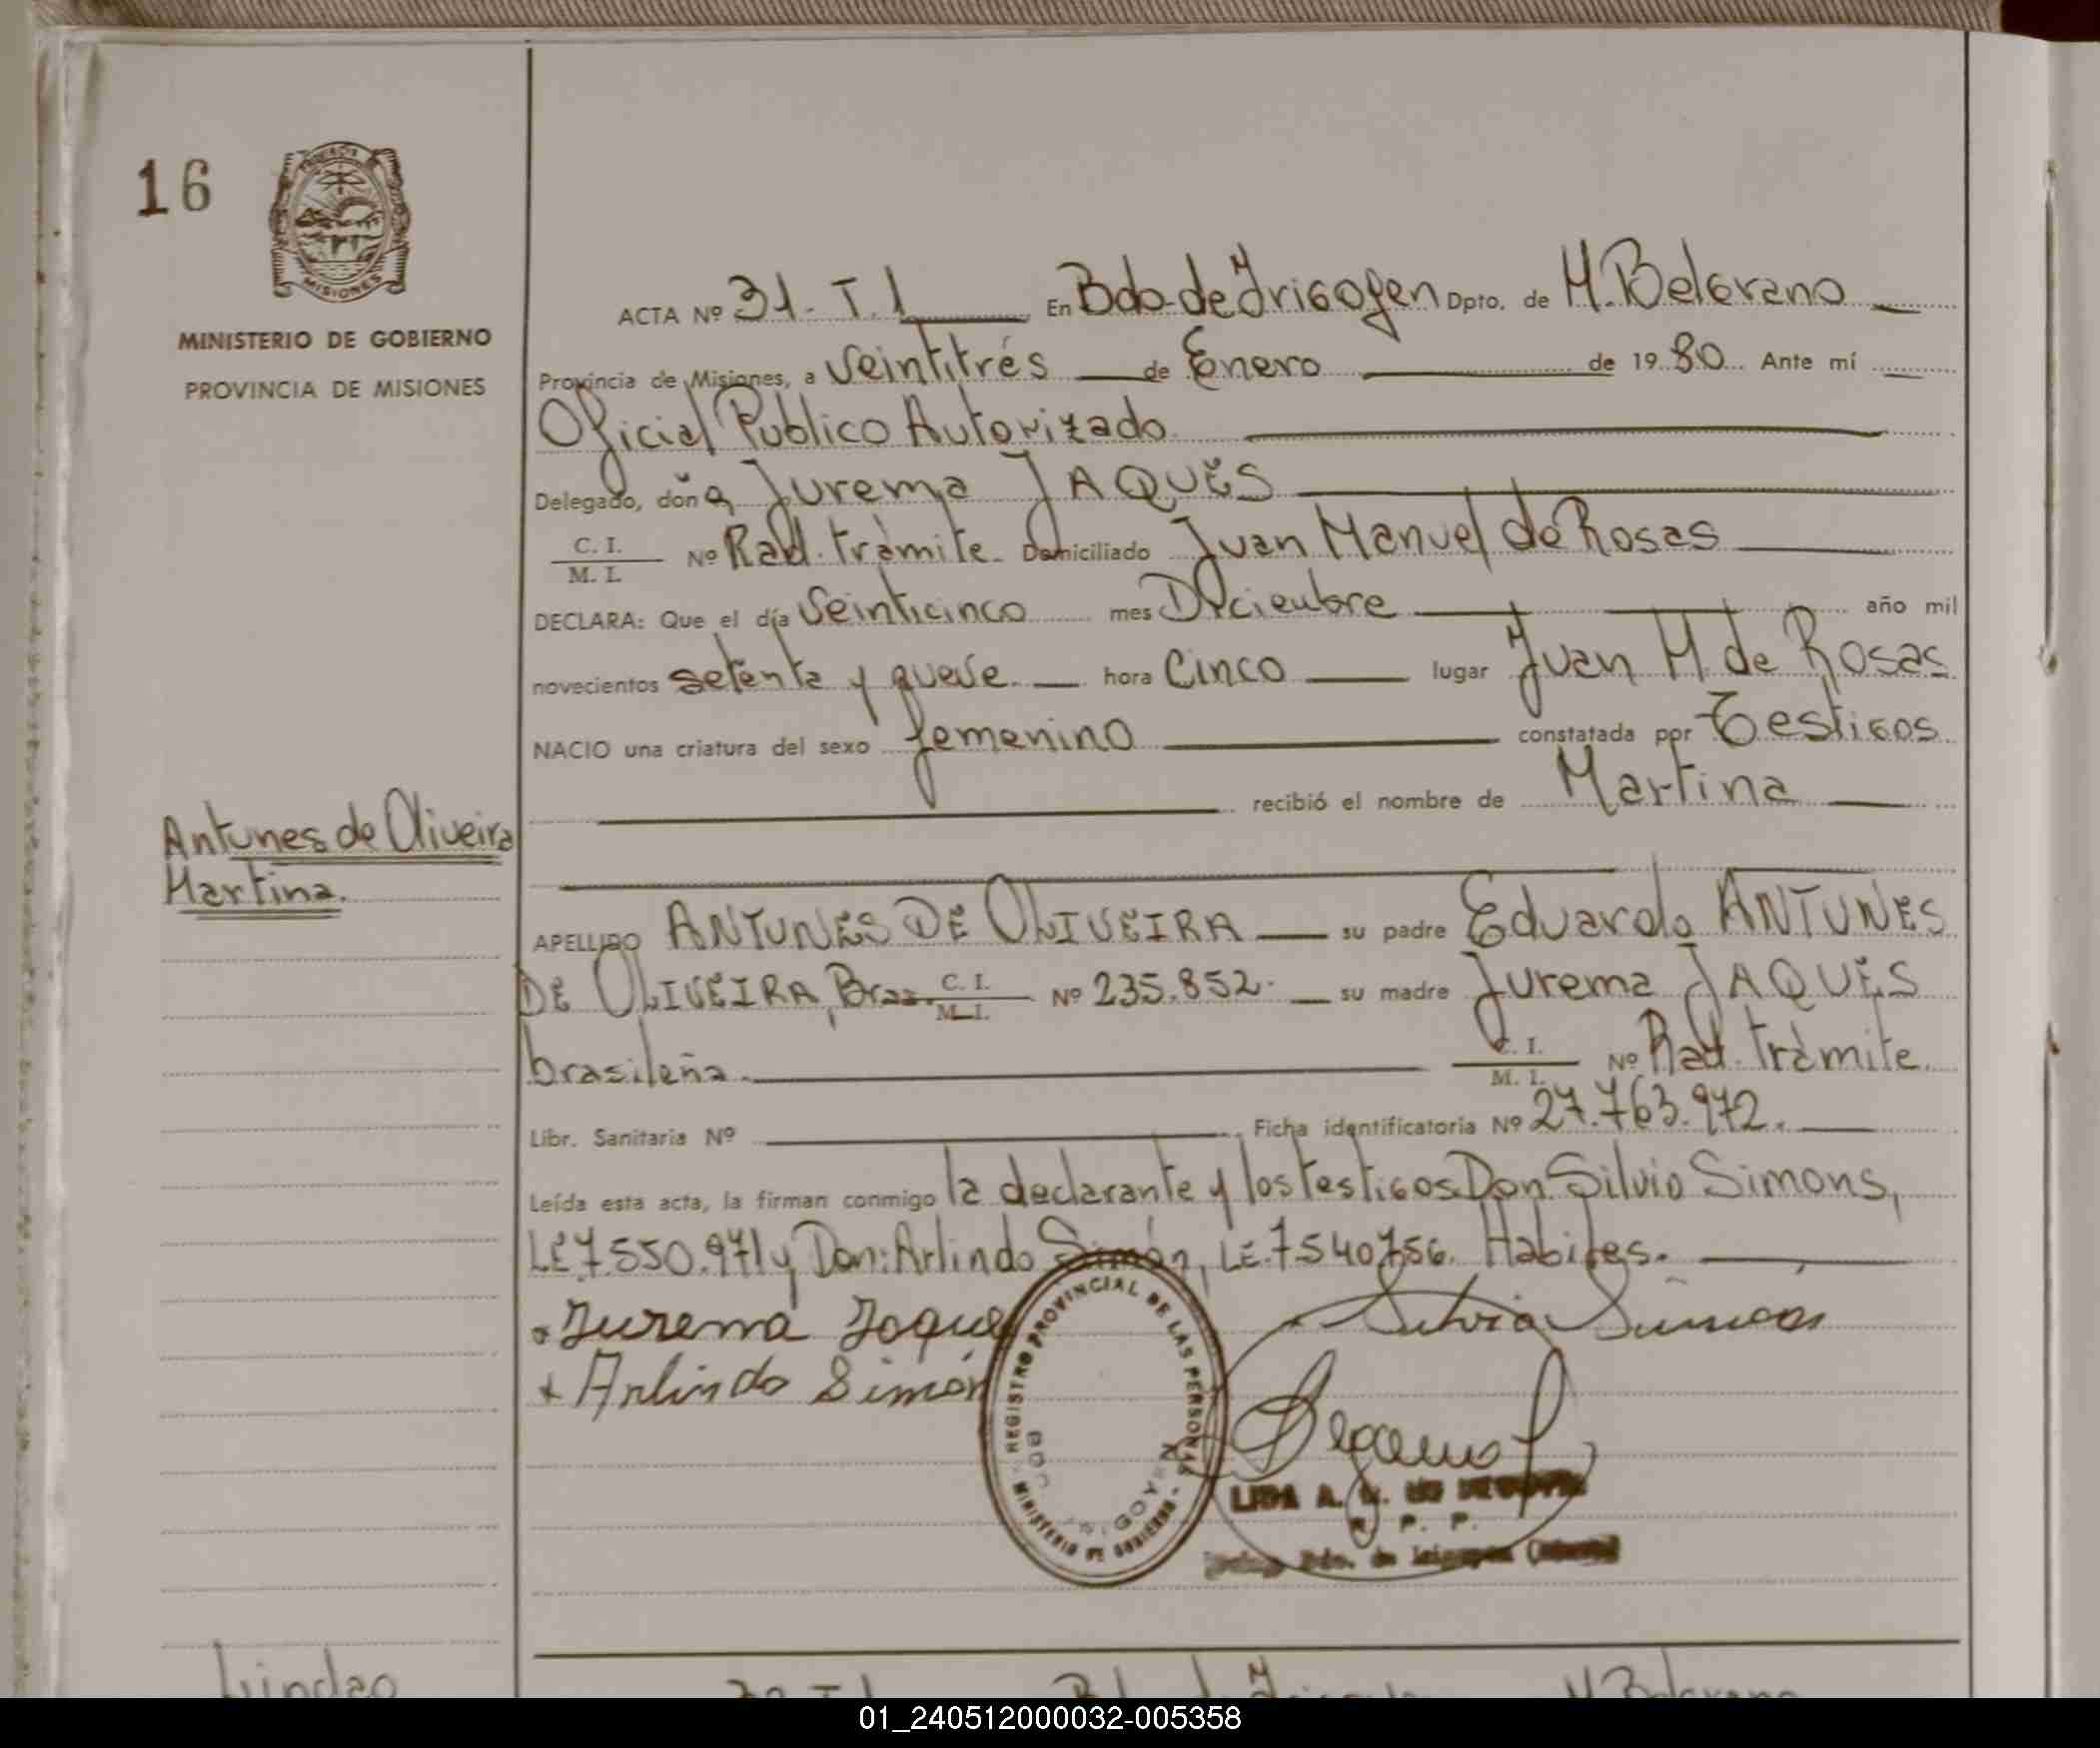 16
MISIONES
MINISTERIO DE GOBIERNO
PROVINCIA DE MISIONES
ACTA Nº 31. T. 1 En Bdo de Irigoyen Dpto. de M. Belgrano
Provincia de Misiones, a Veintitrés de Enero de 1980 Ante mí
Oficial Publico Autorizado
Delegado, doña Jurema JAQUES
C. I. / M. I. Nº Rad. trámite. Domiciliado Juan Manuel de Rosas
DECLARA: Que el día Veinticinco mes Diciembre año mil
novecientos setenta y nueve hora Cinco lugar Juan M. de Rosas
NACIO una criatura del sexo femenino constatada por Testigos
recibió el nombre de Martina
Antunes de Oliveira
Martina.
APELLIDO ANTUNES DE OLIVEIRA su padre Eduardo ANTUNES
DE OLIVEIRA, Bras. C. I. / M. I. Nº 235.852. su madre Jurema JAQUES
brasileña. C. I. / M. I. Nº Rad. trámite.
Libr. Sanitaria Nº Ficha identificatoria Nº 27.763.972.
Leída esta acta, la firman conmigo la declarante y los testigos Don: Silvio Simons,
LE 7.550.971 y Don: Arlindo Simón, LE. 7540756. Habiles.
Jurema Jaques Silvio
Arlindo Simón
REGISTRO PROVINCIAL DE LAS PERSONAS
MINISTERIO DE GOBIERNO
BDO. IRIGOYEN
LIDA A.
R. P. P.
01_240512000032-005358